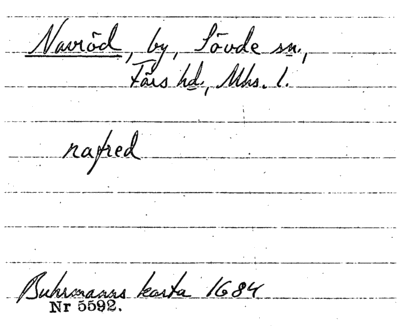 Navröd, by, Sövde sn.,
Färs hd., Mhs. l.
nafred
Buhrmanns karta 1684
Nr 5592.